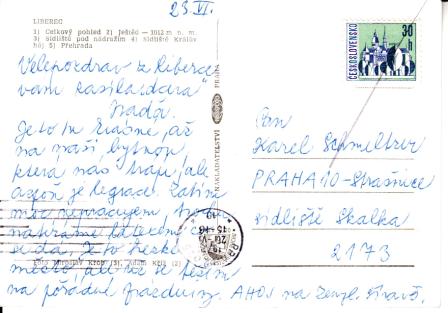 23.VI.
LIBEREC
1) Celkový pohled 2) Ještěd — 1012 m n. m.
3) Sídliště pod nádražím 4) Sídliště Králův
háj 5) Přehrada
Velepozdrav z Liberce
vám zasílá
Naďa.
Je to tu úžasné, až
na naší bytnou,
která nás
je legrace. Zatím
moc nepracujem,
se dá, je to hezké
město, ale už se těším
na pořádné prázdniny. AHOJ na
Foto Miroslav Krob (3), Adam (2)
NAKLADATELSTVÍ
PRAHA
ČESKOSLOVENSKO
30
h
Pan
Karel Schmeltzer
PRAHA 10-Strašnice
sídliště Skalka
2173